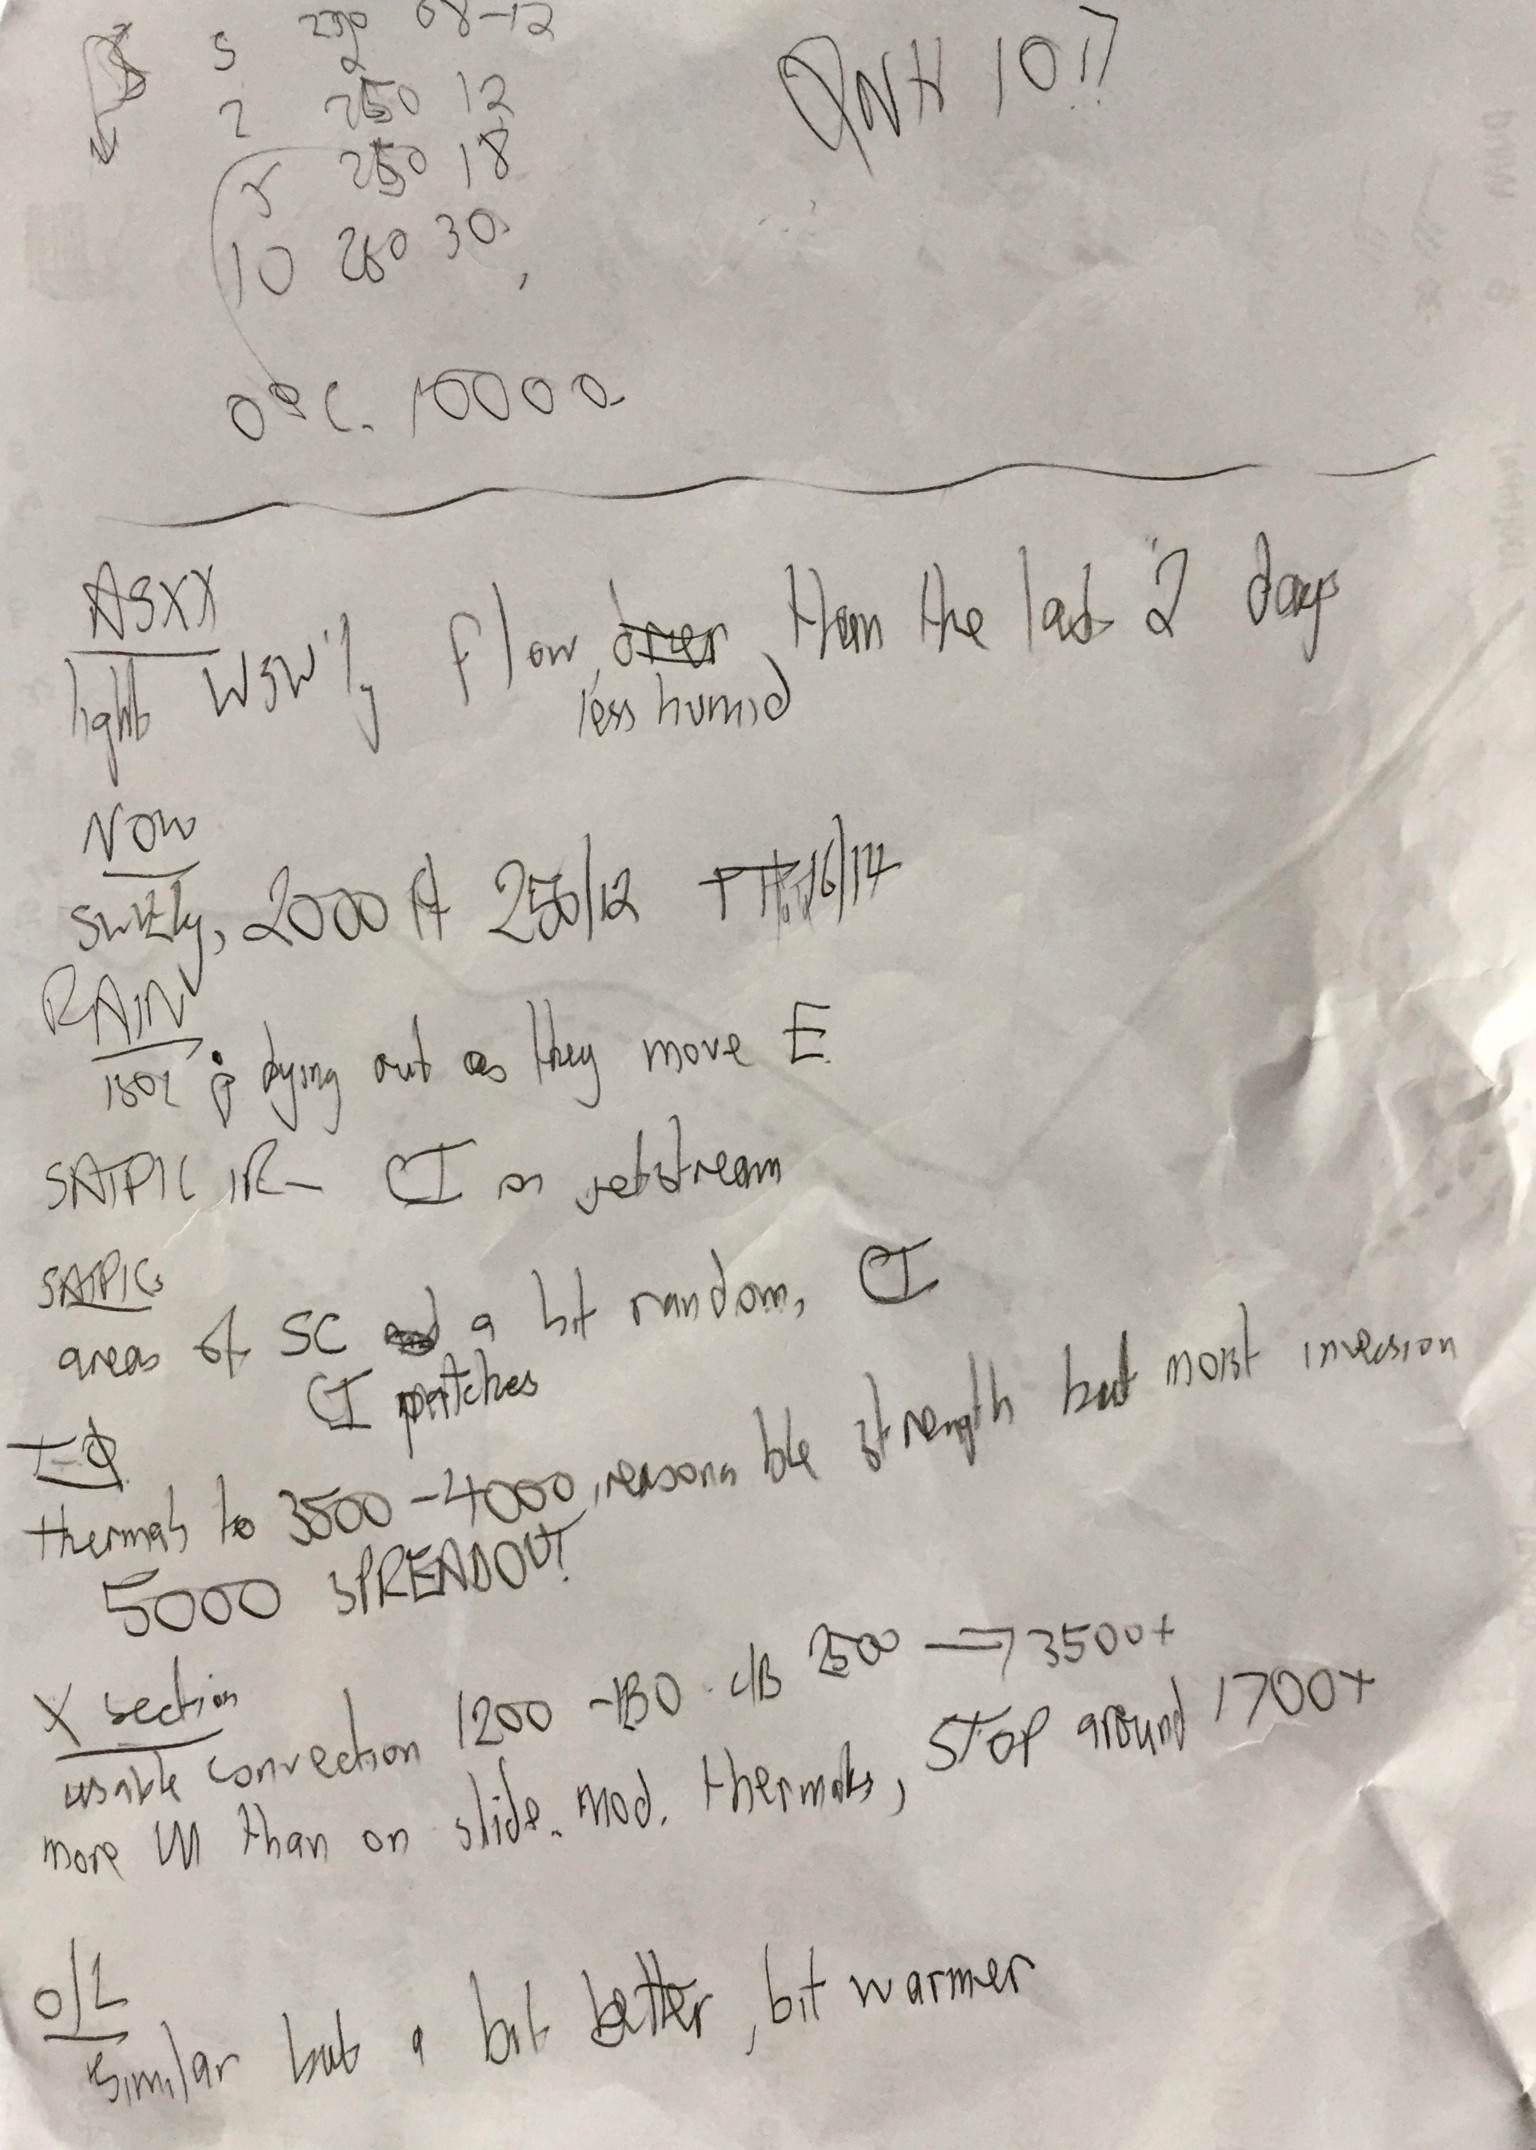 S 230 08-12
QNH 1017
2 250 12
5 250 18
10 260 30
0°C. 10000
ASXX
light WSW'ly flow, drier than the last 2 days
less humid
NOW
SW'ly, 2000 ft 250/12 TT 16/14
RAIN
isol dying out as they move E.
SATPIC IR - CI on jetstream
SATPICs
areas of SC a bit random, CI
CI patches
T-Φ
thermals to 3500-4000, reasonable strength but moist inversion
5000 SPREADOUT
X section
usable convection 1200 - C/B 2500 → 3500+
more than on slide. mod. thermals, STOP around 1700+
O/L
similar but a bit better, bit warmer